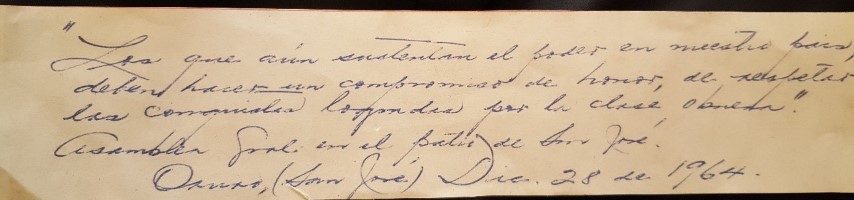 "Los que aún sustentan el poder en nuestro país,
deben hacer un compromiso de honor, de respetar
las conquistas logradas por la clase obrera".
Asamblea Gral. en el patio de San José.
Oruro, (San José) Dic. 28 de 1964.